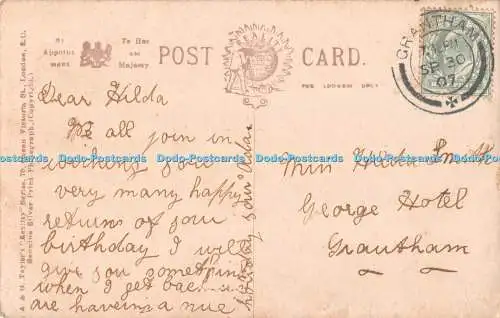 By
Appoint
ment
To Her
Majesty
POST CARD.
REALITY
FOR ADDRESS ONLY
GRANTHAM
SP 30
07
A & G Taylor's "Reality" Series, 70, Queen Victoria St., London, E.C.
Genuine Silver Print Photograph. (Copyright).
Dear Hilda
We all join in
wishing you
very many happy
returns of your
birthday I will
give you something
when I get back
are haveing a nice
holiday your
Miss Hilda
George Hotel
Grantham
Dodo-Postcards Dodo-Postcards Dodo-Postcards Dodo-Postcards Dodo-Postcards Dodo-Postcards